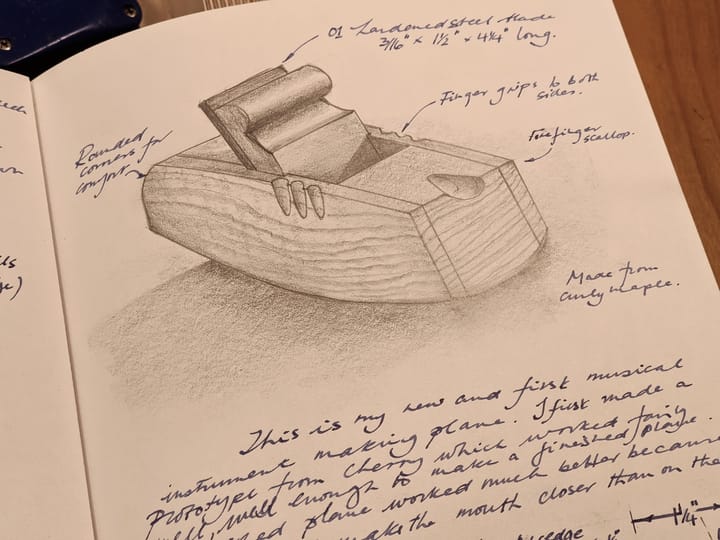 O1 Hardened steel blade
3/16" x 1 1/2" x 4 1/4" long.
Finger grips to both
sides.
Forefinger
scallop.
Rounded
corners for
comfort
Made from
curly maple.
This is my new and first musical
instrument making plane. I first made a
prototype from cherry which worked fairly
well, well enough to make a finished plane.
plane worked much better because
make the mouth closer than on the
1 1/4"